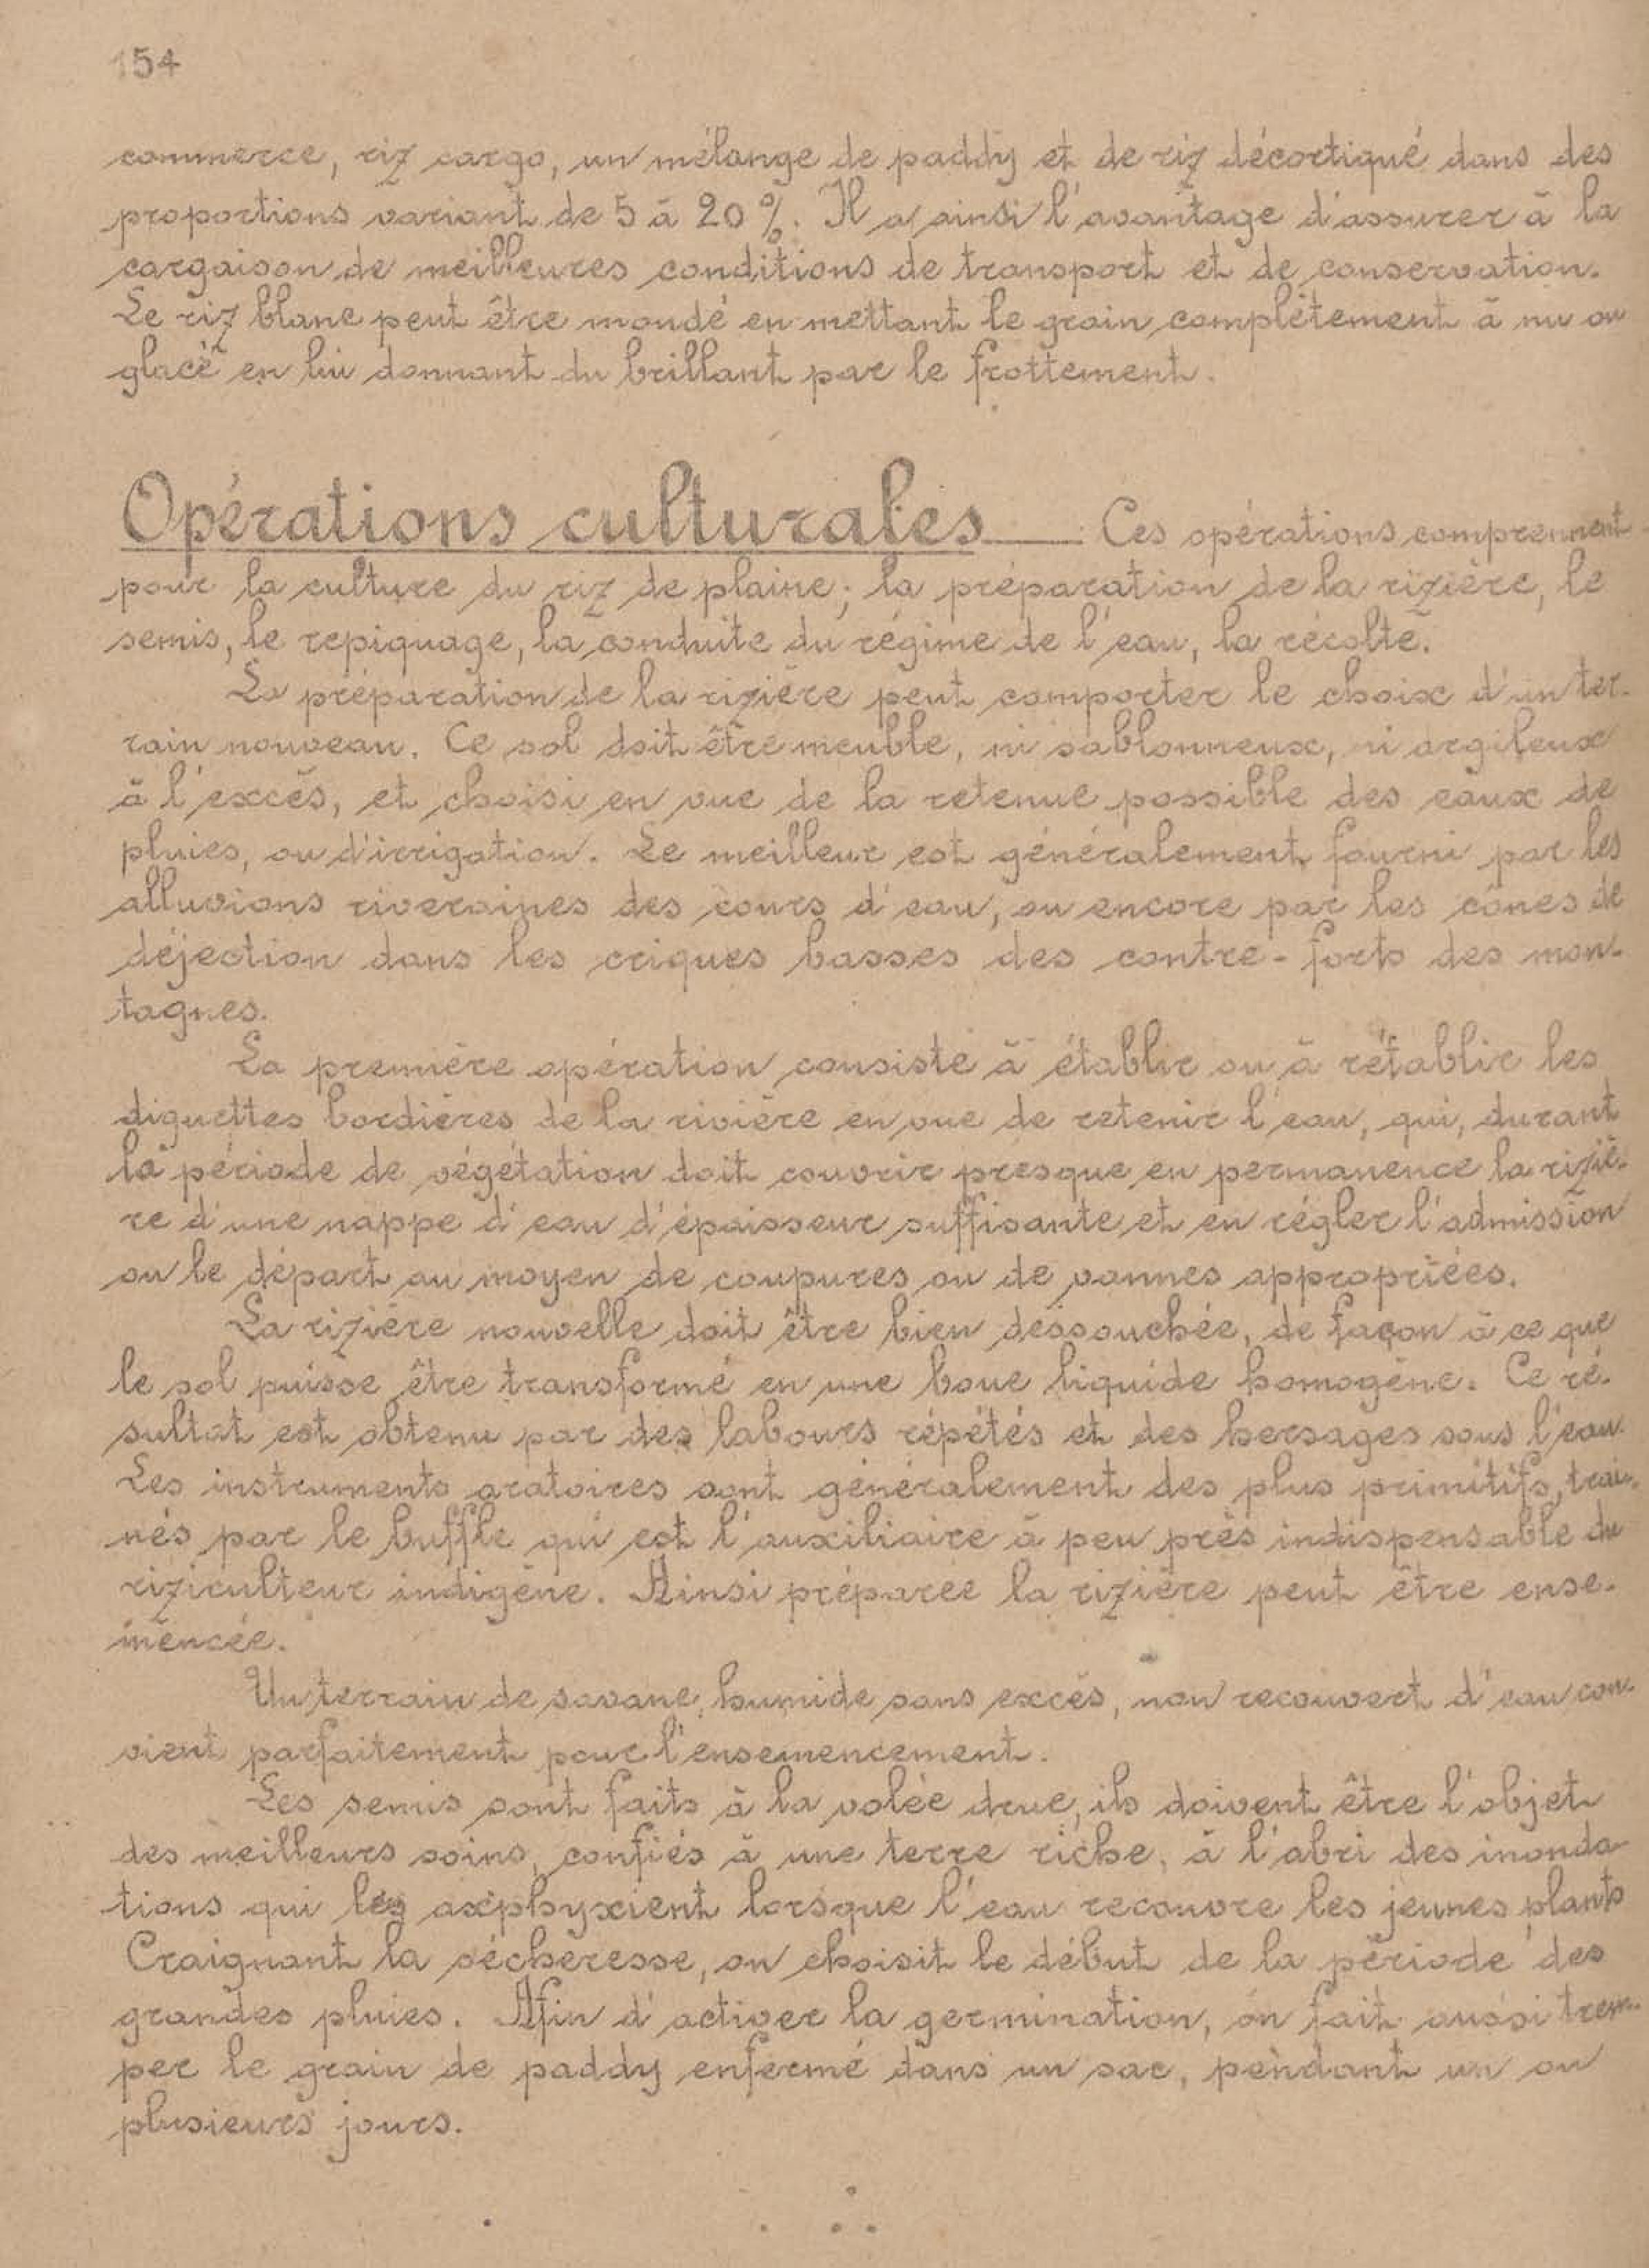 154
commerce, riz cargo, un mélange de paddy et de riz décortiqué dans des
proportions variant de 5 à 20 %. Il a ainsi l'avantage d'assurer à la
cargaison de meilleures conditions de transport et de conservation.
Le riz blanc peut être mondé en mettant le grain complètement à nu ou
glacé en lui donnant du brillant par le frottement.
Opérations culturales. Ces opérations comprennent
pour la culture du riz de plaine; la préparation de la rizière, le
semis, le repiquage, la conduite du régime de l'eau, la récolte.
La préparation de la rizière peut comporter le choix d'un ter-
rain nouveau. Ce sol doit être meuble, ni sablonneux, ni argileux
à l'excès, et choisi en vue de la retenue possible des eaux de
pluies, ou d'irrigation. Le meilleur est généralement fourni par les
alluvions riveraines des cours d'eau, ou encore par les cônes de
déjection dans les criques basses des contre-forts des mon-
tagnes.
La première opération consiste à établir ou à rétablir les
diguettes bordières de la rivière en vue de retenir l'eau, qui, durant
la période de végétation doit couvrir presque en permanence la riziè-
re d'une nappe d'eau d'épaisseur suffisante et en régler l'admission
ou le départ au moyen de coupures ou de vannes appropriées.
La rizière nouvelle doit être bien dessouchée, de façon à ce que
le sol puisse être transformé en une boue liquide homogène. Ce ré-
sultat est obtenu par des labours répétés et des hersages sous l'eau.
Les instruments aratoires sont généralement des plus primitifs, trai-
nés par le buffle qui est l'auxiliaire à peu près indispensable du
riziculteur indigène. Ainsi préparée la rizière peut être ense-
mencée.
Un terrain de savane, humide sans excès, non recouvert d'eau con-
vient parfaitement pour l'ensemencement.
Les semis sont faits à la volée drue, ils doivent être l'objet
des meilleurs soins, confiés à une terre riche, à l'abri des inonda-
tions qui les axphyxient lorsque l'eau recouvre les jeunes plants
Craignant la sécheresse, on choisit le début de la période des
grandes pluies. Afin d'activer la germination, on fait aussi trem-
per le grain de paddy enfermé dans un sac, pendant un ou
plusieurs jours.